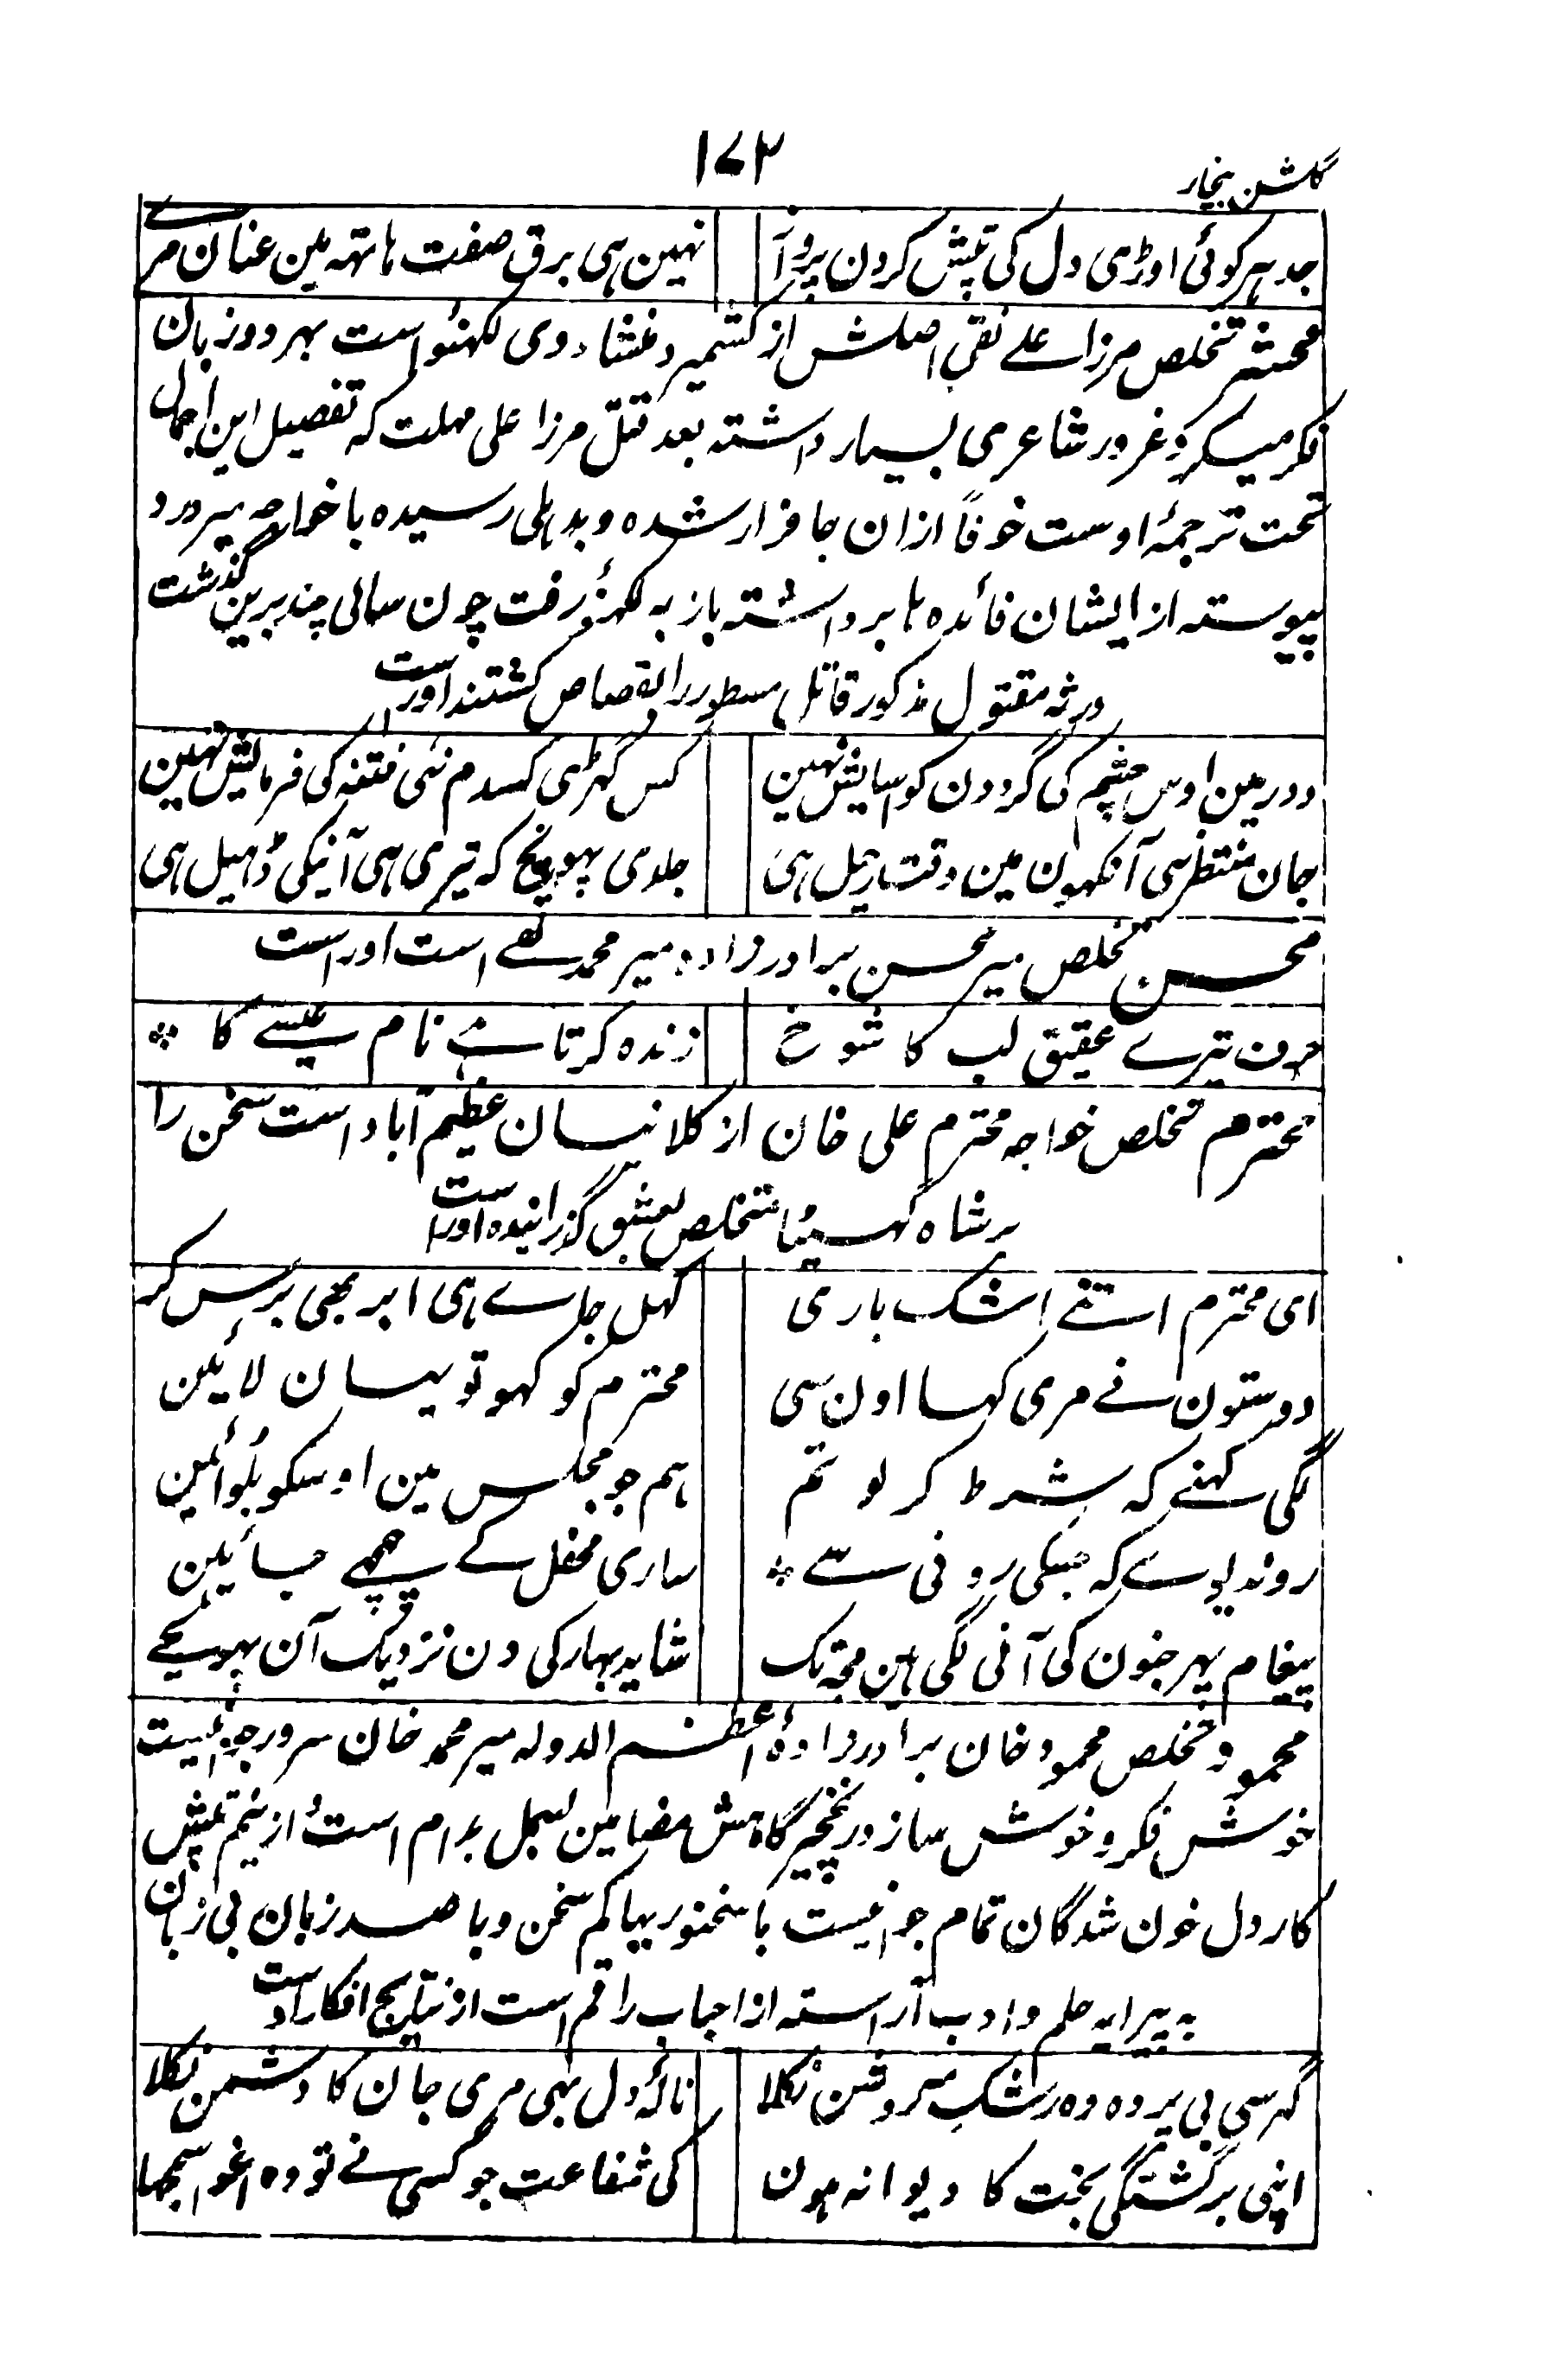 ۱۷۲
گلشن بیخار
جدہر کوئی اوڑی دل کی تپش کرون پرواز نہین ہی برق صفت ہاتہہ مین عنان میرے
محشر تخلص مرزا علے نقی اصلش از کشمیر و منشاء وی لکہنؤ است بہر دو زبان
فکر میکرد و غرور شاعری بسیار داشتہ بعد قتل مرزا علی مہلت کہ تفصیل این اجمال
تحت ترجمۂ اوست خوفاً ازان جا فرار شدہ و بدہلی رسیدہ با خواجہ میر درد
پیوستہ از ایشان فائدہ ہا برداشتہ باز بہ لکہنؤ رفت چون سالی چند برین گذشت
ورثہ مقتول مذکور قاتل مسطور را بقصاص کشتند اوراست
دور مین اوس چشم کی گردون کو آسایش نہین کس گہڑی کسدم نئی فتنہ کی فرمایش نہین
جان منتظر سی آنکہون مین وقت رحیل ہی جلدی پہونچ کہ تیری ہی آنیکی ڈہیل ہی
محسن تخلص میر محسن برادر زادہ میر محمد تقے است اوراست
حرف تیرے عقیق لب کا شوخ زندہ کرتا ہے نام عیسے کا
محترم تخلص خواجہ محترم علی خان از کلانیسان عظیم آباد است سخن را
بر شاہ گہسیٹا متخلص بعشق گذرانیدہ اوراست
ای محترم اتنے اشک باری کہل جاے ہی ابر بہی برس کر
دوستون نے مری کہا اون سی محترم کو کہو تو یہان لائین
لگی کہنے کہ شرط کر لو تم ہم جو مجلس مین اوسکو بلوائین
روند یوے کہ جسکی رونی سے ساری محفل کے پیچھے جائین
پیغام پہر جنون کی آنی لگی ہین مجہ تک شاید بہار کی دن نزدیک آن پہونچے
محمود تخلص محمود خان برادر زادہ اعظم الدولہ میر محمد خان سرور جوانیست
خوش فکر و خوش ساز در نخچیر گاہش مضامین بسمل بدام است و از نیم تپش
کار دل خون شدگان تمام جوانیست با سخنوریہا کم سخن و با صد زبان بی زبان
بہ پیرایہ حلم و ادب آراستہ از احباب راقم است از نتایج افکار اوست
گہر سی بی پردہ وہ رشک مہ روشن نکلا نالۂ دل بہی مری جان کا دشمن نکلا
اپنی برگشتگی بخت کا دیوانہ ہون کی شفاعت جو کسی نے تو وہ اغوا سمجہا